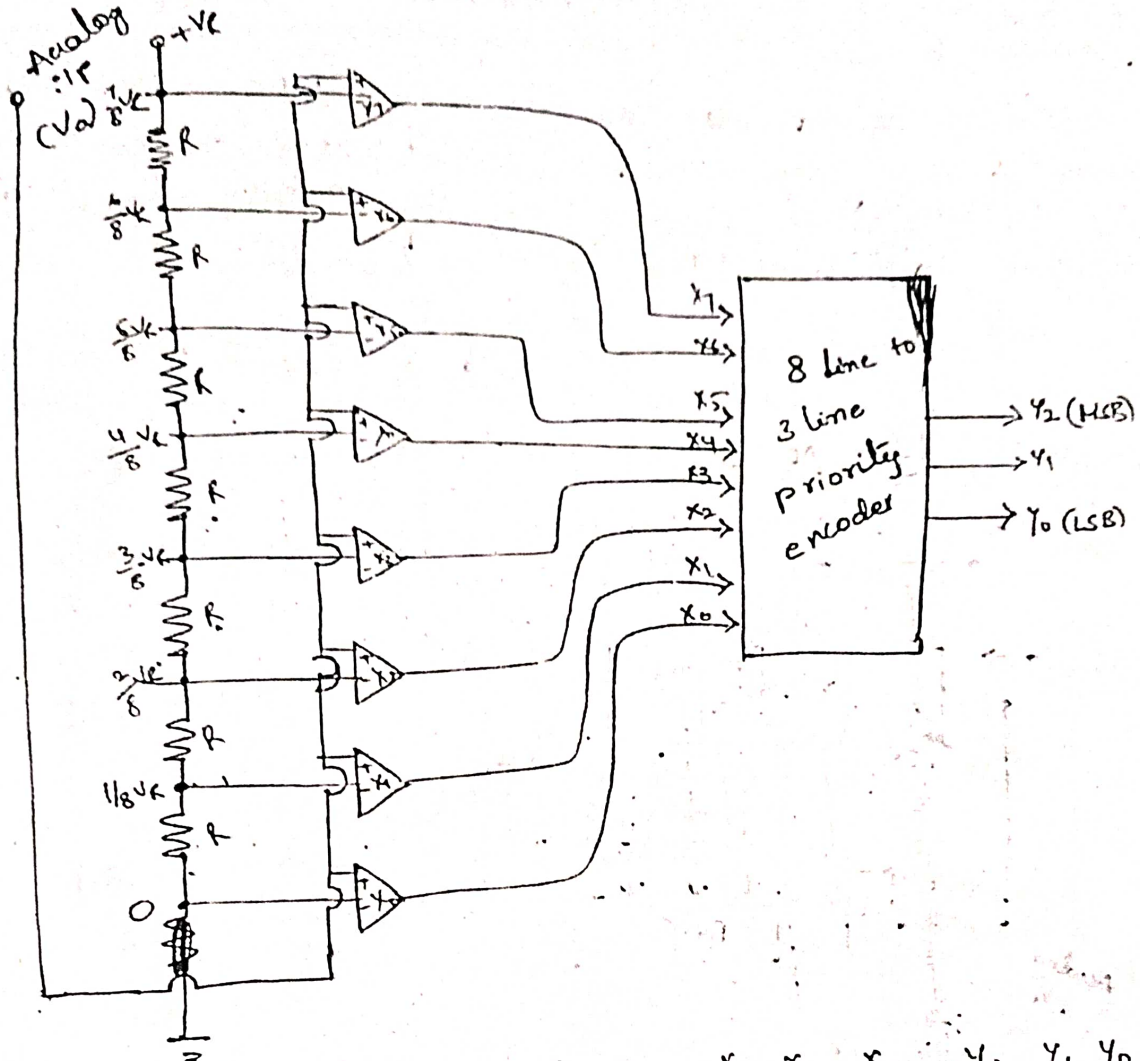 Analog
i/p
(Va)
+VR
7/8 VR
R
6/8 VR
R
5/8 VR
R
4/8 VR
R
3/8 VR
R
2/8 VR
R
1/8 VR
R
0
+
-
X7
+
-
X6
+
-
X5
+
-
+
-
X3
+
-
+
-
X1
+
-
X7
X6
X5
X4
X3
X2
X1
X0
8 line to
3 line
priority
encoder
Y2 (MSB)
Y1
Y0 (LSB)
Y1 Y0